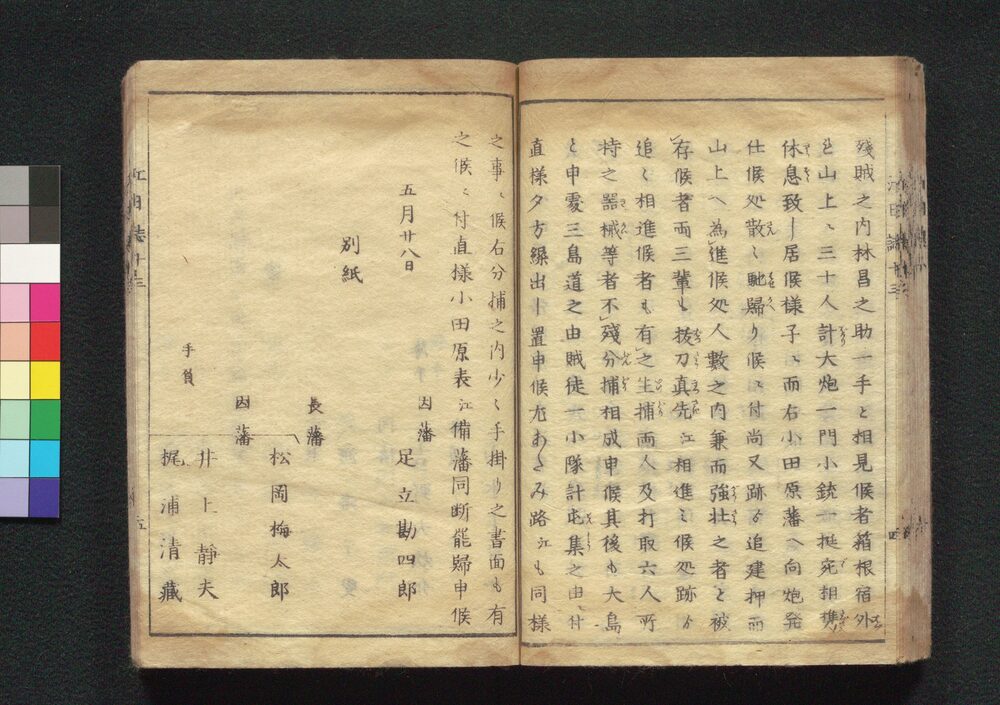 残賊之内林昌之助一手と相見候者箱根宿外
と山上ニ三十人計大炮一門小銃一挺宛相携
休息致し居候様子ニ而右小田原藩へ向炮発
仕候処散々馳帰り候ニ付尚又跡ゟ追建押而
山上へ為進候処人數之内兼而強壮之者と被
存候者両三輩も抜刀真先江相進ミ候処跡ゟ
追々相進候者も有之生捕両人及打取六人所
持之器械等者不残分捕相成申候其後も大島
と申處三島道之由賊徒一小隊計屯集之由ニ付
直様夕方繰出し置申候尤あたみ路江も同様
之事ニ候右分捕之内少々手掛り之書面も有
之候ニ付直様小田原表江備藩同断能歸申候
五月廿八日
因藩 足立勘四郎
別紙
長藩 松岡梅太郎
因藩 井上靜夫
手負 梶浦清藏
江日誌十三
五